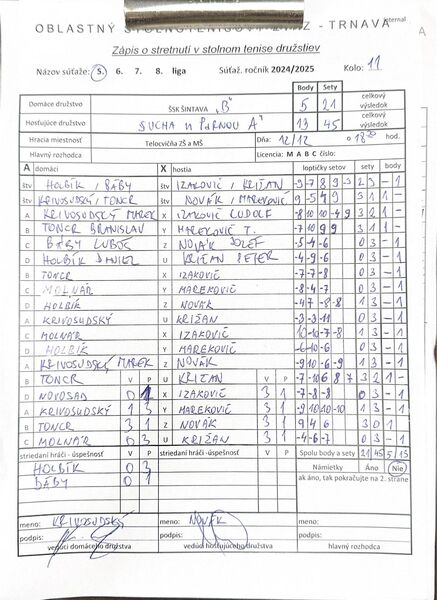 OBLASTNÝ STOLNOTENISOVÝ ZVÄZ - TRNAVA
Internal
Zápis o stretnutí v stolnom tenise družstiev
Názov súťaže: 5. 6. 7. 8. liga Súťaž. ročník 2024/2025 Kolo: 11
Body Sety
Domáce družstvo ŠSK ŠINTAVA "B" 5 21 celkový výsledok
Hosťujúce družstvo SUCHA N PARNOU A 13 45 celkový výsledok
Hracia miestnosť Telocvičňa ZŠ a MŠ Dňa: 12/12 o 18 hod.
Hlavný rozhodca Licencia: M A B C číslo:
A domáci X hostia loptičky setov sety body
štv HOLBÍK / BÁBY štv IZAKOVIČ / KRIŽAN -9 -7 8 9 -3 2 3 - 1
štv KRIVOSUDSKÝ / TONCR štv NOVÁK / MAREKOVIČ 9 -5 4 9 3 1 1 -
A KRIVOSUDSKÝ MAREK X IZAKOVIČ LUDOLF -8 10 10 -4 9
B TONCR BRANISLAV Y MAREKOVIČ T. -7 10 9 9 3 1 1 -
C BÁBY ĽUBOŠ Z NOVÁK JOZEF -5 -4 -6 0 3 - 1
D HOLBÍK DANIEL U KRIŽAN PETER -4 -9 -6 0 3 - 1
B TONCR X IZAKOVIČ -7 -7 -8 0 3 - 1
C MOLNÁR Y MAREKOVIČ -8 -4 -7 0 3 - 1
D HOLBÍK Z NOVÁK -4 7 -8 -8 1 3 - 1
A KRIVOSUDSKÝ U KRIŽAN -3 -3 -11 0 3 - 1
C MOLNÁR X IZAKOVIČ 10 -10 -7 -8 1 3 - 1
D HOLBÍK Y MAREKOVIČ -6 -10 -6 0 3 - 1
A KRIVOSUDSKÝ MAREK Z NOVÁK -9 10 -6 -9 1 3 - 1
B TONCR V P U KRIŽAN V P -7 -10 6 8 7 3 2 1 -
D NOVOSAD 0 1 X IZAKOVIČ 3 1 -7 -8 -8 0 3 - 1
A KRIVOSUDSKÝ 1 3 Y MAREKOVIČ 3 1 -9 10 -10 -10 1 3 - 1
B TONCR 3 1 Z NOVÁK 3 1 9 4 6 3 0 1
C MOLNÁR 0 3 U KRIŽAN 3 1 -4 -6 -7 0 3 - 1
striedaní hráči - úspešnosť V P striedaní hráči - úspešnosť V P Spolu body a sety 21 45 5 13
HOLBÍK 0 3 Námietky Áno Nie
BÁBY 0 1 ak áno, tak pokračujte na 2. strane
meno: KRIVOSUDSKÝ meno: NOVÁK meno:
podpis: podpis: podpis:
vedúci domáceho družstva vedúci hosťujúceho družstva hlavný rozhodca